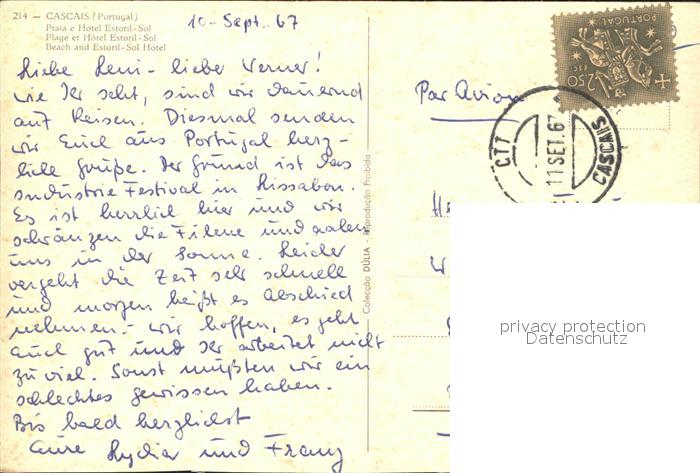 214 — CASCAIS (Portugal)
Praia e Hotel Estoril-Sol
Plage et Hôtel Estoril-Sol
Beach and Estoril-Sol Hotel
10. Sept. 67
Liebe Leni - lieber Werner!
wie Ihr seht, sind wir dauernd
auf Reisen. Diesmal senden
wir Euch aus Portugal herz-
liche Grüße. Der Grund ist das
Industrie Festival in Lissabon.
Es ist herrlich hier und wir
schwänzen die Filme und aalen
uns in der Sonne. Leider
vergeht die Zeit sehr schnell
und morgen heißt es Abschied
nehmen. - Wir hoffen, es geht
Euch gut und Ihr arbeitet nicht
zu viel. Sonst müßten wir ein
schlechtes Gewissen haben.
Bis bald herzlichst
Eure Lydia und Franz
Colecção DÚLIA - Reprodução Proibida
Par Avion
PORTUGAL
2$50
CTT
11 SET. 67
CASCAIS
privacy protection
Datenschutz